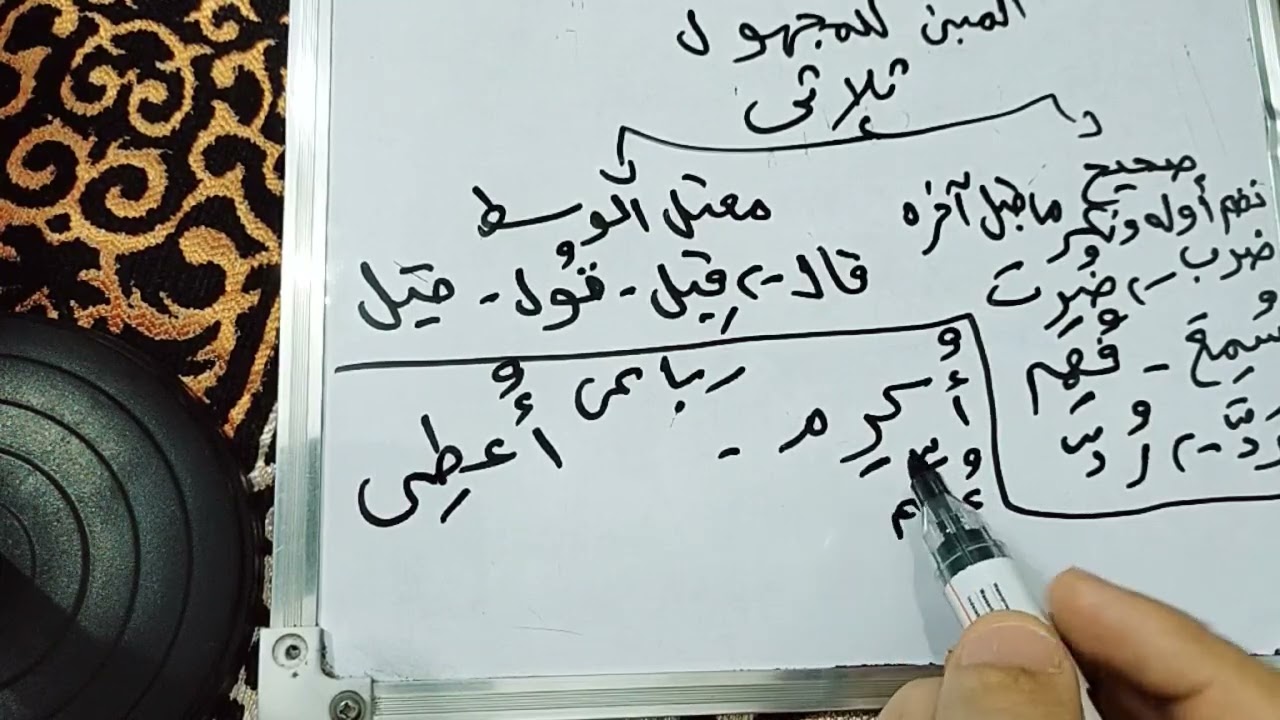 المبنى للمجهول
ثلاثى
صحيح
نضم أوله ونكسر ما قبل آخره
ضرب - ضُرِب
سُمِعَ - فُهِم
رَدَّ - رُدّ
معتل الوسط
قال - قِيل - قُول - قيل
رباعى
أُكرِم - أُعطِى